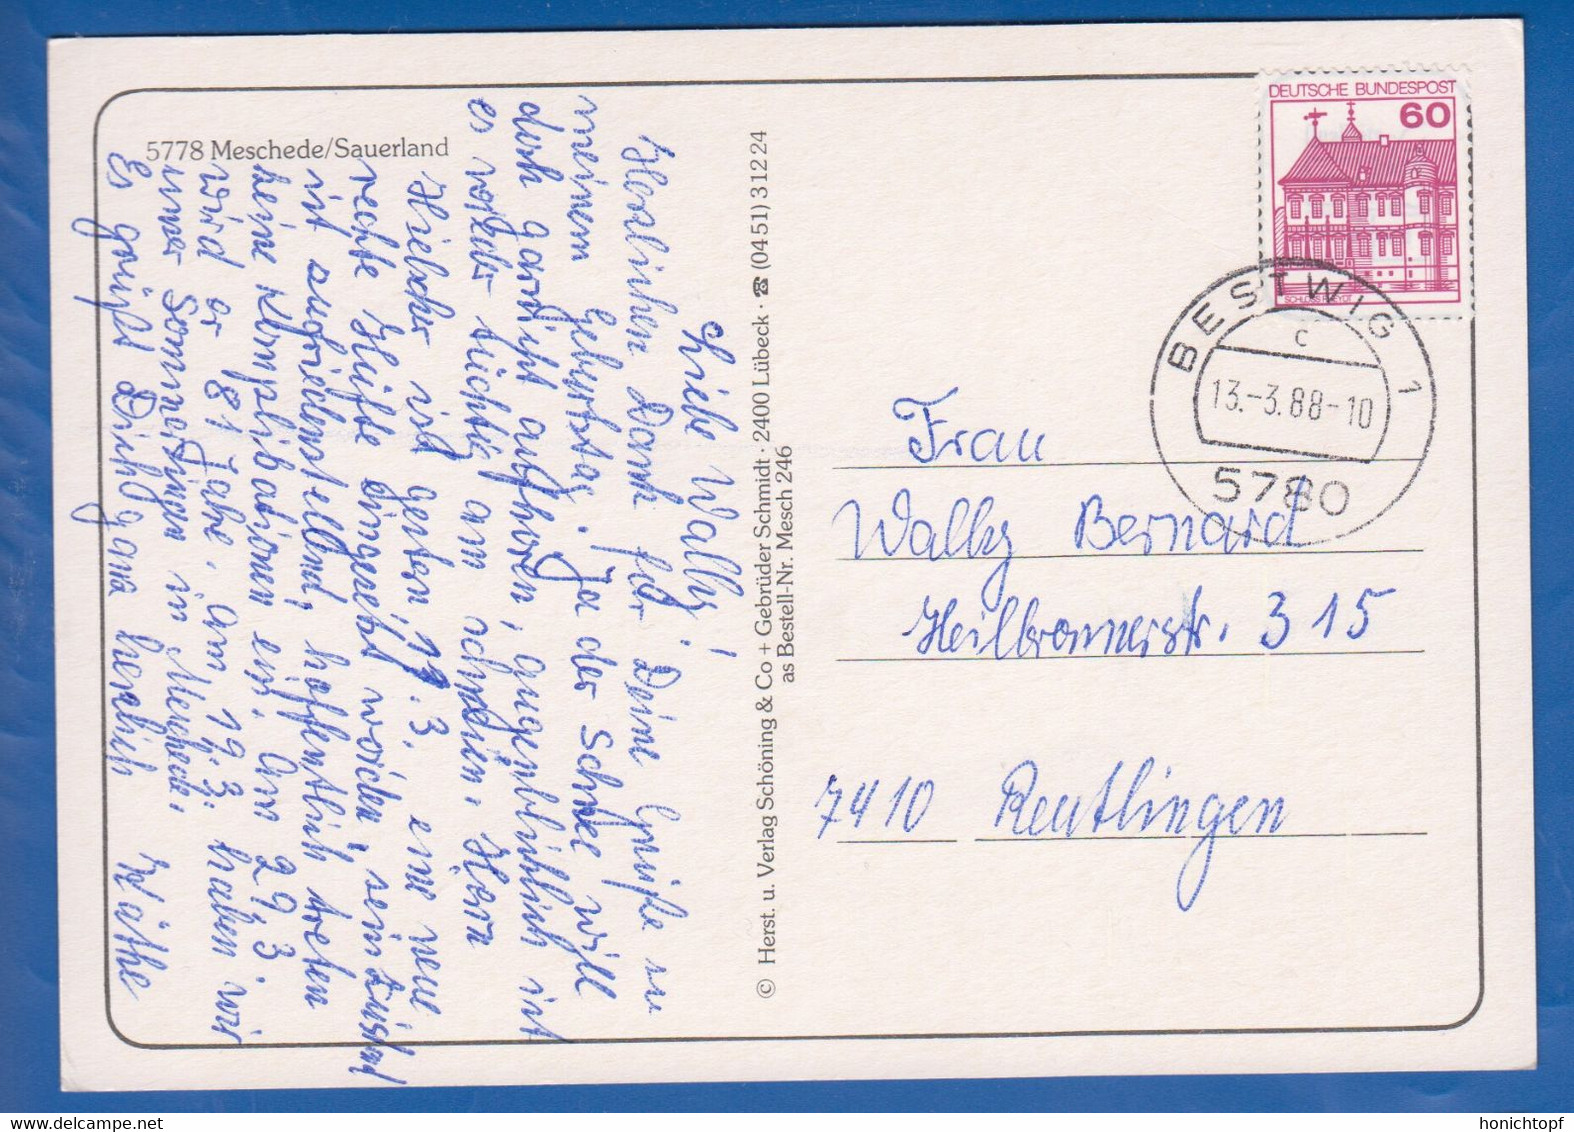 5778 Meschede/Sauerland
Liebe Wally!
Herzlichen Dank für Deine Grüße zu
meinem Geburtstag. Ja der Schnee will
doch garnicht aufhören, augenblicklich ist
es wieder tüchtig am schneien. Herrn
Hielscher ist gestern, 11.3. eine neue
rechte Hüfte eingesetzt worden, sein Zustand
ist zufriedenstellend, hoffentlich treten
keine Komplikationen ein. Am 29.3.
wird er 81 Jahre. Am 19.3. haben wir
unser Sommersingen in Meschede.
Es grüßt Dich ganz herzlich Käthe
© Herst. u. Verlag Schöning & Co + Gebrüder Schmidt · 2400 Lübeck · ☎ (0451) 31224
as Bestell-Nr. Mesch 246
DEUTSCHE BUNDESPOST
60
SCHLOSS RHEYDT
BESTWIG 1
c
13.-3.88-10
5780
Frau
Wally Bernard
Heilbronnerstr. 315
7410 Reutlingen
honichtopf